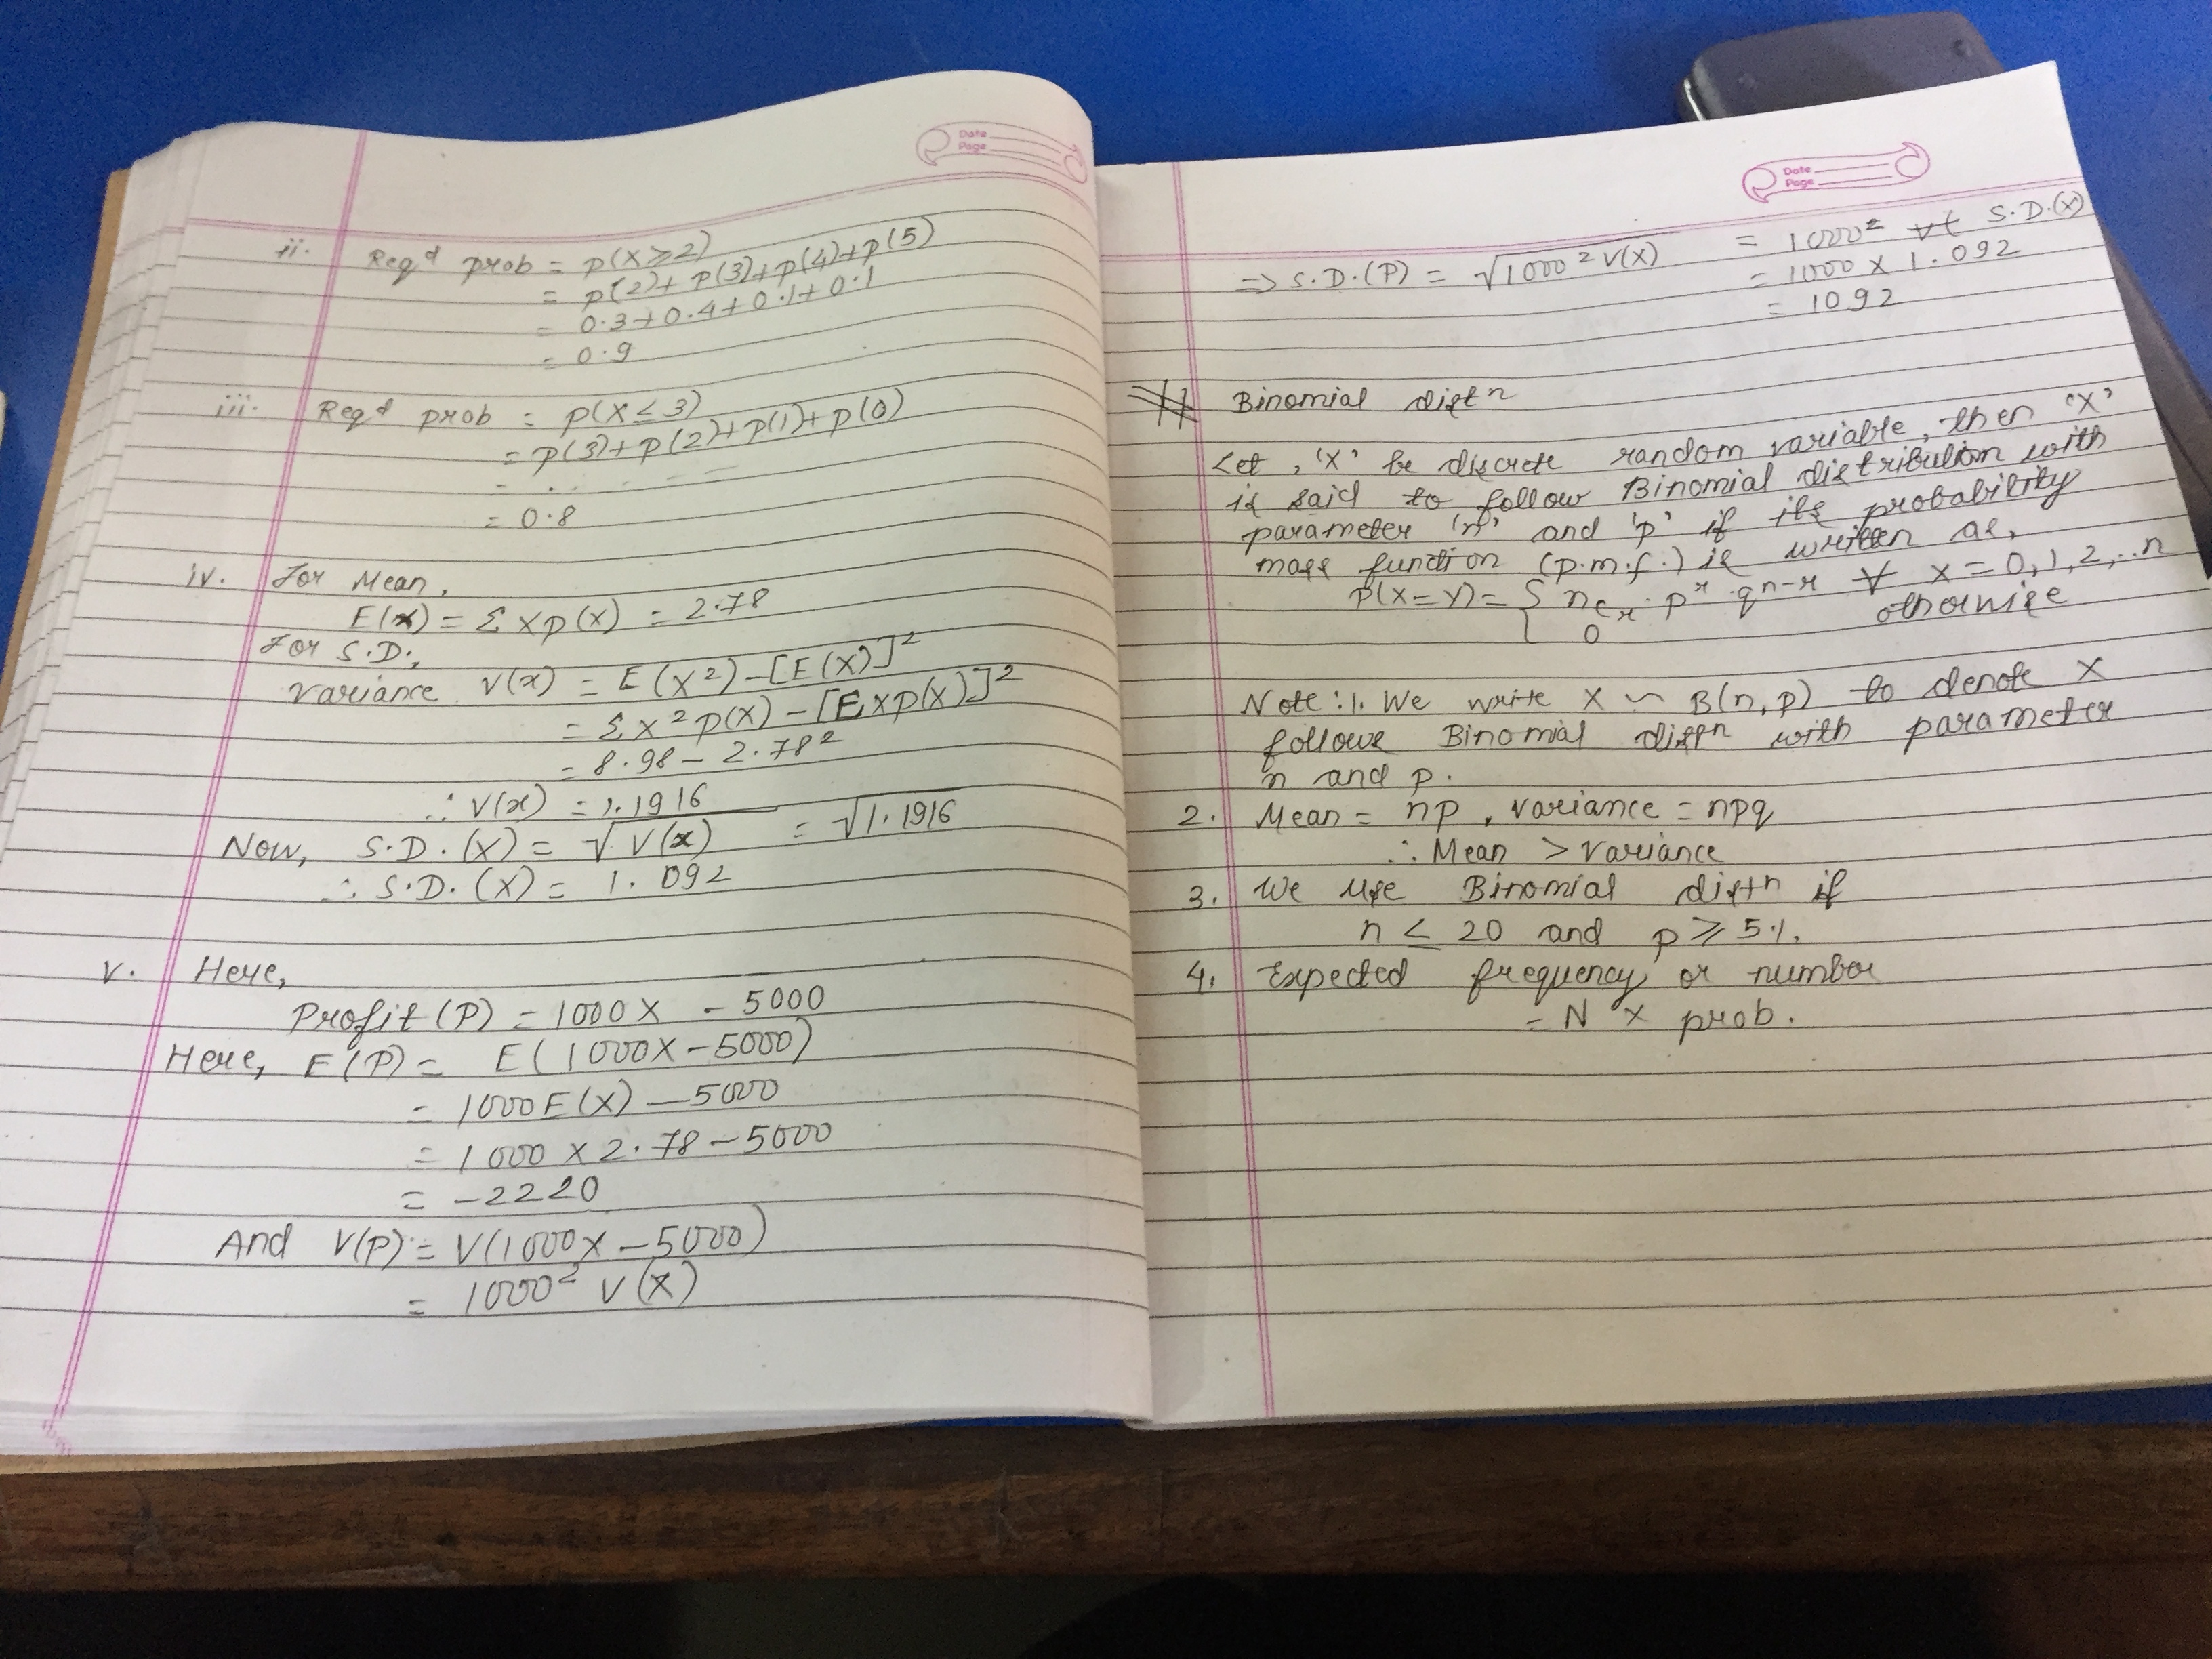 Date
Page
ii. Req^d prob = p(x ≥ 2)
= p(2) + p(3) + p(4) + p(5)
= 0.3 + 0.4 + 0.1 + 0.1
= 0.9
iii. Req^d prob = p(x ≤ 3)
= p(3) + p(2) + p(1) + p(0)
= 0.8
iv. For Mean,
E(x) = Σ x p(x) = 2.78
For S.D.,
Variance V(x) = E(x²) - [E(x)]²
= Σ x² p(x) - [Σ x p(x)]²
= 8.98 - 2.78²
∴ V(x) = 1.1916
Now, S.D.(x) = √V(x) = √1.1916
∴ S.D.(x) = 1.092
v. Here,
Profit (P) = 1000x - 5000
Here, E(P) = E(1000x - 5000)
= 1000E(x) - 5000
= 1000 x 2.78 - 5000
= -2220
And V(P) = V(1000x - 5000)
= 1000² V(x)
Date
Page
=> S.D.(P) = √1000² V(x) = 1000 S.D.(x)
= 1000 x 1.092
= 1092
# Binomial distn
Let, 'X' be discrete random variable, then 'X'
is said to follow Binomial distribution with
parameter 'n' and 'p' if its probability
mass function (p.m.f.) is written as,
P(X=x) = { ncx . p^x . q^n-x ∀ x = 0,1,2,...n
0 otherwise
Note: 1. We write X ~ B(n,p) to denote X
follows Binomial distn with parameter
n and p.
2. Mean = np, variance = npq
∴ Mean > variance
3. We use Binomial distn if
n ≤ 20 and p ≥ 5%.
4. Expected frequency or number
= N x prob.